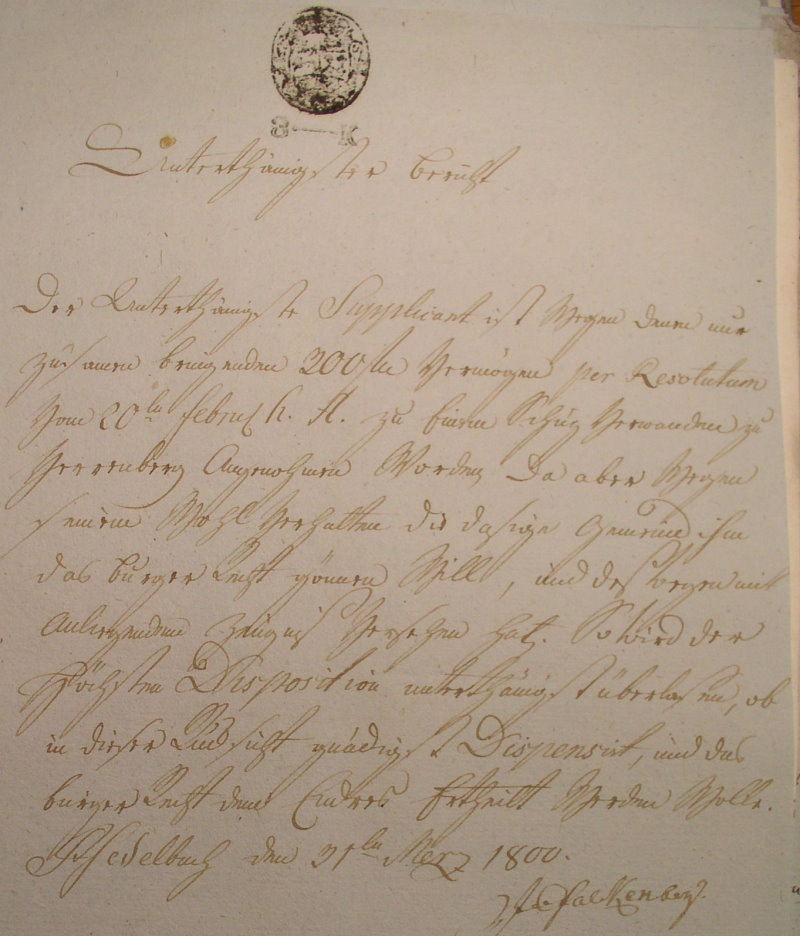 3 K
Unterthänigster Bericht
Der Unterthänigste Supplicant ist Wegen denen nur
zusamen bringenden 200 fl Vermögen per Resolutum
Vom 20ten Febru h. A. zu Einem Schuz Verwanden zu
Herrenberg Angenohmen Worden Da aber Wegen
seinem Wohl Verhalten die dasige Gemeind ihm
das burger Recht gönnen Will, und deswegen mit
Anliegendem Zeugnis Versehen hat. So wird der
Höchsten Disposition unterthänigst überlasen, ob
in dieser Rücksicht gnädigst Dispensirt, und das
burger Recht dem Endres Ertheilt Werden Wolle.
den 21ten Merz 1800.
Falkenberg